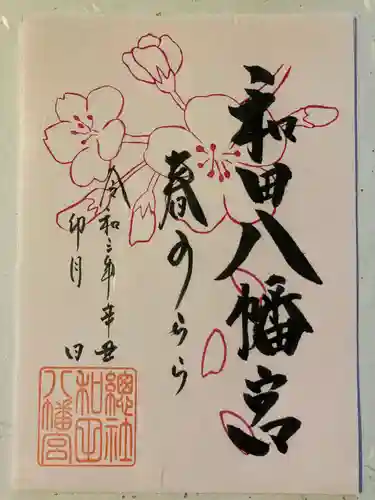 和田八幡宮
春のうらら
令和三年辛丑
卯月 日
總社
和田
八幡宮